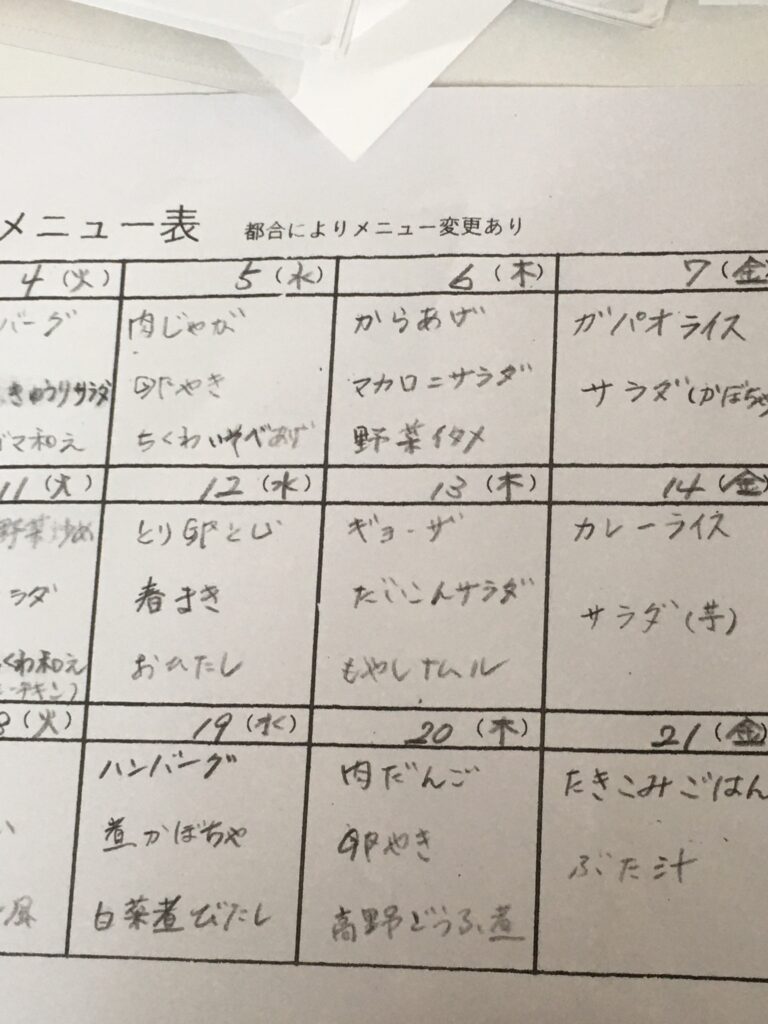 メニュー表 都合によりメニュー変更あり
4(火) 5(水) 6(木) 7(金)
バーグ 肉じゃが からあげ ガパオライス
きゅうりサラダ 卵やき マカロニサラダ サラダ(かぼちゃ
ゴマ和え ちくわいそべあげ 野菜イタメ
11(火) 12(水) 13(木) 14(金)
野菜炒め とり卵とじ ギョーザ カレーライス
ラダ 春まき だいこんサラダ サラダ(芋)
くわ和え おひたし もやしナムル
チキン)
8(火) 19(水) 20(木) 21(金)
ハンバーグ 肉だんご たきこみごはん
い 煮かぼちゃ 卵やき ぶた汁
風 白菜煮びたし 高野どうふ煮